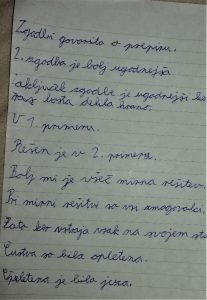 Zgodbi govorita o prepiru.
2. zgodba je bolj ugodnejša
zaključek zgodbe je ugodnejši ker
nas bosta delila hrano.
V 1. primeru.
Rešen je v 2. primeru.
Bolj mi je všeč mirna rešitev.
Pri mirni rešitvi so vsi zmagovalci.
Zato ker vztraja vsak na svojem
Čustva so bila opletena.
Opletena je bila jeza.